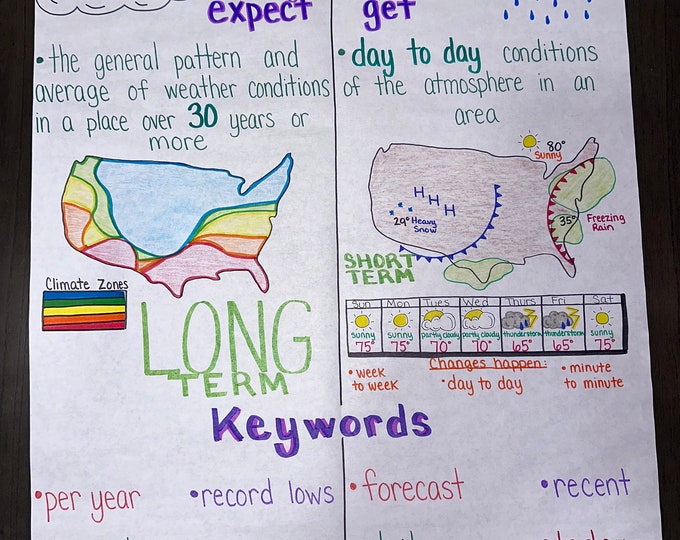 expect
• the general pattern and
average of weather conditions
in a place over 30 years or
more
Climate Zones
LONG
TERM
get
• day to day conditions
of the atmosphere in an
area
80°
Sunny
H H H
29° Heavy
Snow
35° Freezing
Rain
SHORT
TERM
Sun Mon Tues Wed Thurs Fri Sat
sunny sunny partly cloudy partly cloudy thunderstorm thunderstorm sunny
75° 75° 70° 70° 65° 65° 75°
Changes happen:
• week
to week
• day to day
• minute
to minute
Keywords
• per year
• record lows
• forecast
• recent